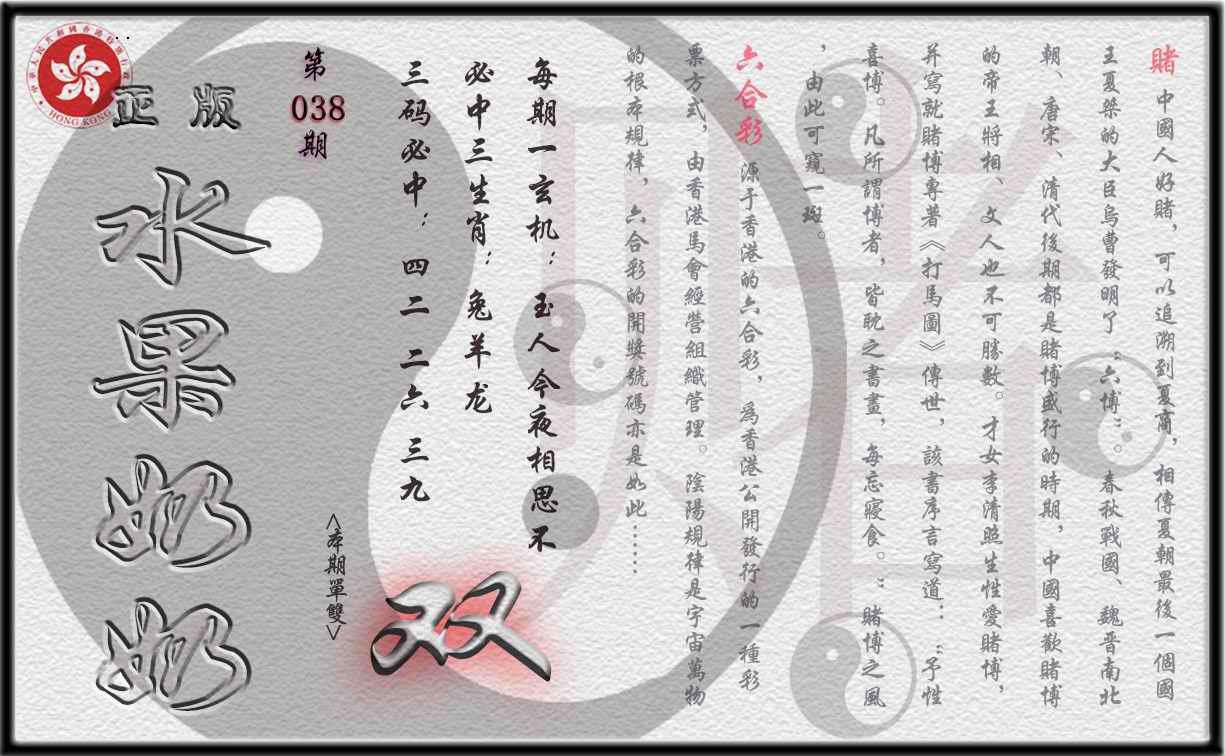 賭 中國人好賭，可以追溯到夏商，相傳夏朝最後一個國
王夏桀的大臣烏曹發明了“六博”。春秋戰國、魏晉南北
朝、唐宋、清代後期都是賭博盛行的時期，中國喜歡賭博
的帝王將相、文人也不可勝數。才女李清照生性愛賭博，
并寫就賭博專著《打馬圖》傳世，該書序言寫道：“予性
喜博。凡所謂博者，皆耽之晝晝，每忘寢食。”賭博之風
，由此可窺一斑。
六合彩 源于香港的六合彩，爲香港公開發行的一種彩
票方式，由香港馬會經營組織管理。陰陽規律是宇宙萬物
的根本規律，六合彩的開獎號碼亦是如此……
每期一玄机：玉人今夜相思不
必中三生肖：兔羊龙
三码必中：四二 二六 三九
<本期單雙>
双
第
038
期
正版
水果奶奶
中華人民共和國香港特別行政區
HONG KONG
賭